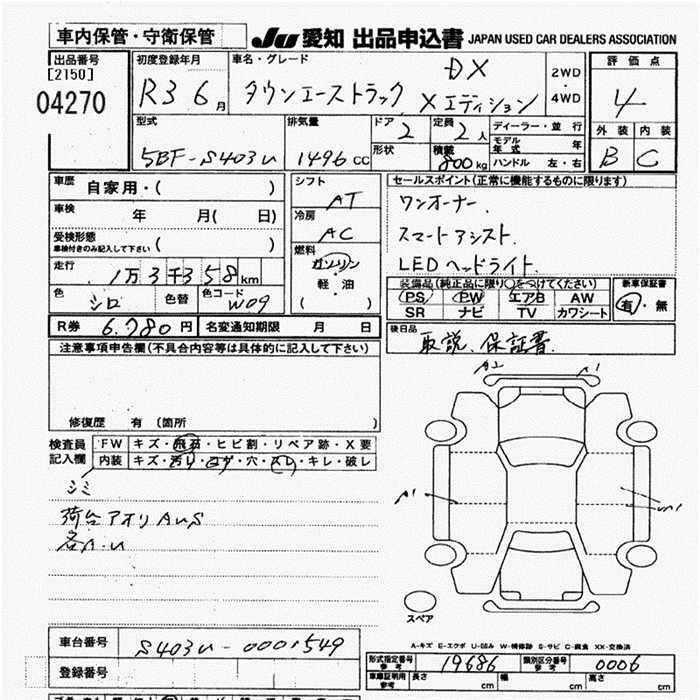 車内保管・守衛保管
JU 愛知 出品申込書 JAPAN USED CAR DEALERS ASSOCIATION
出品番号
[2150]
04270
初度登録年月
R3 6 月
車名・グレード
DX
タウンエーストラック Xエディション
2WD
・
4WD
評価点
4
外装 内装
B C
型式
5BF-S403U
排気量
1496 CC
ドア
2
定員
2 人
形状
積載
800 kg
ディーラー・並行
モデル年式 年
ハンドル 左・右
車歴
自家用・( )
車検
年 月( 日)
受検形態
車検付きのみ記入して下さい ( )
走行
1万3千358 km
色
シロ
色替
色コード
W09
シフト
AT
冷房
AC
燃料
ガソリン
軽・油
( )
セールスポイント(正常に機能するものに限ります)
ワンオーナー.
スマートアシスト.
LEDヘッドライト.
装備品(純正品に限り○をつけてください)
PS PW エアB AW
SR ナビ TV カワシート
新車保証書
有・無
R券 6.780 円
名変通知期限 月 日
後日品
取説、保証書.
注意事項申告欄(不具合内容等は具体的に記入して下さい)
修復歴 有 (箇所 )
検査員
記入欄
FW キズ・飛石・ヒビ割・リペア跡・X要
内装 キズ・汚れ・コゲ・穴・スレ・キレ・破レ
シミ
荷台アオリAUS
各A.U
A2
A1
A1
スペア
A-キズ E-エクボ U-凹み W-補修跡 S-サビ C-腐食 XX-交換済
車台番号
S403U-0001549
登録番号
形式指定番号
参考
19686
類別区分番号
参考
0006
車庫証明用
参考
長さ cm
幅 cm
高さ cm